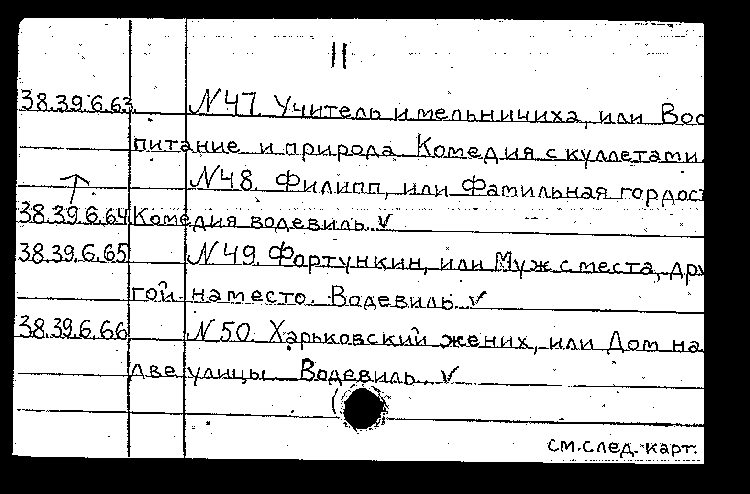 11
38.39.6.63 N47. Учитель и мельничиха, или Вос
питание и природа Комедия с куплетами.
N48. Филипп, или Фамильная гордост
38.39.6.64 Комедия водевиль. v
38.39.6.65 N49. Фортункин, или Муж с места, дру
гой на место. Водевиль v
38.39.6.66 N50. Харьковский жених, или Дом на
две улицы Водевиль. v
см. след. карт.